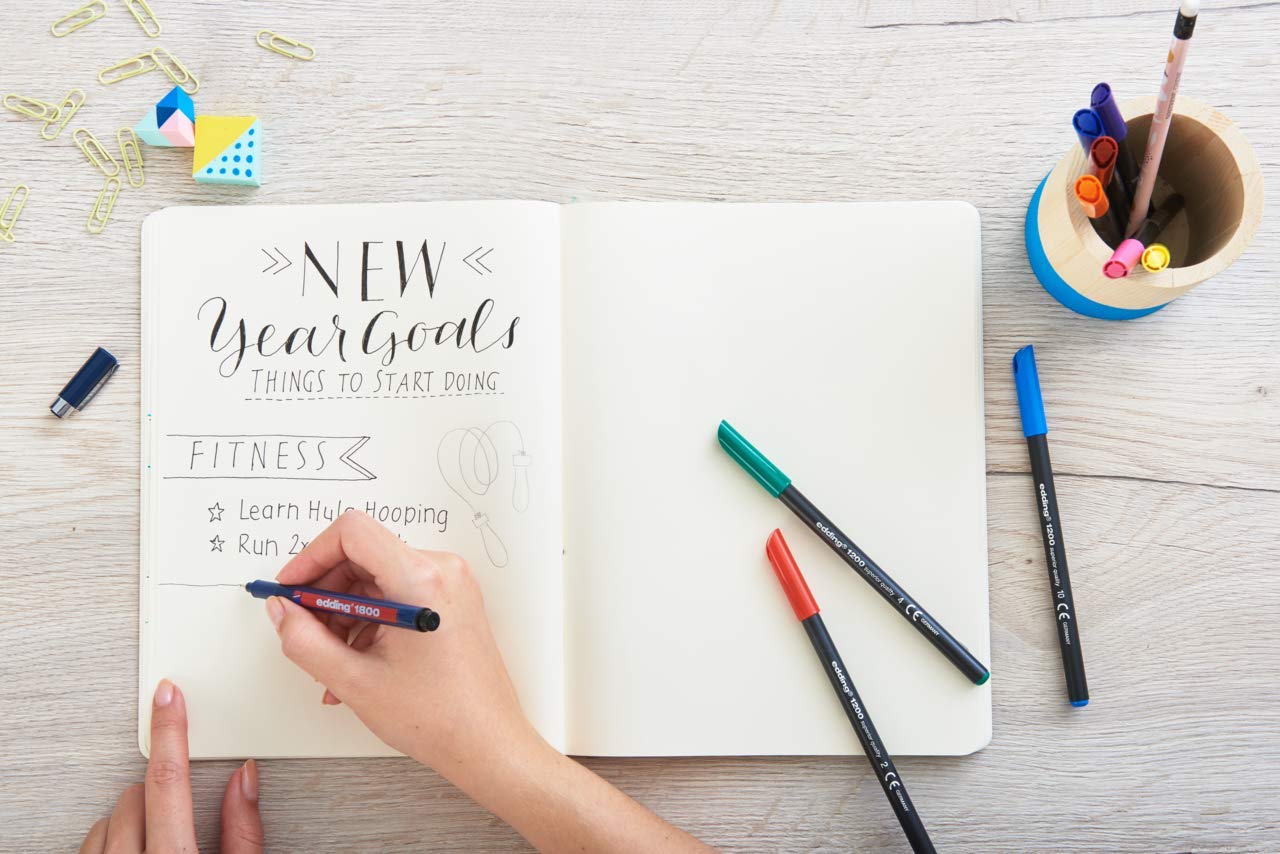 NEW
Year Goals
THINGS TO START DOING
FITNESS
Learn Hula Hooping
Run 2x
edding® 1800
edding® 1200 superior quality 4 CE GERMANY
edding® 1200 superior quality 2 CE GERMANY
edding® 1200 superior quality 10 CE GERMANY